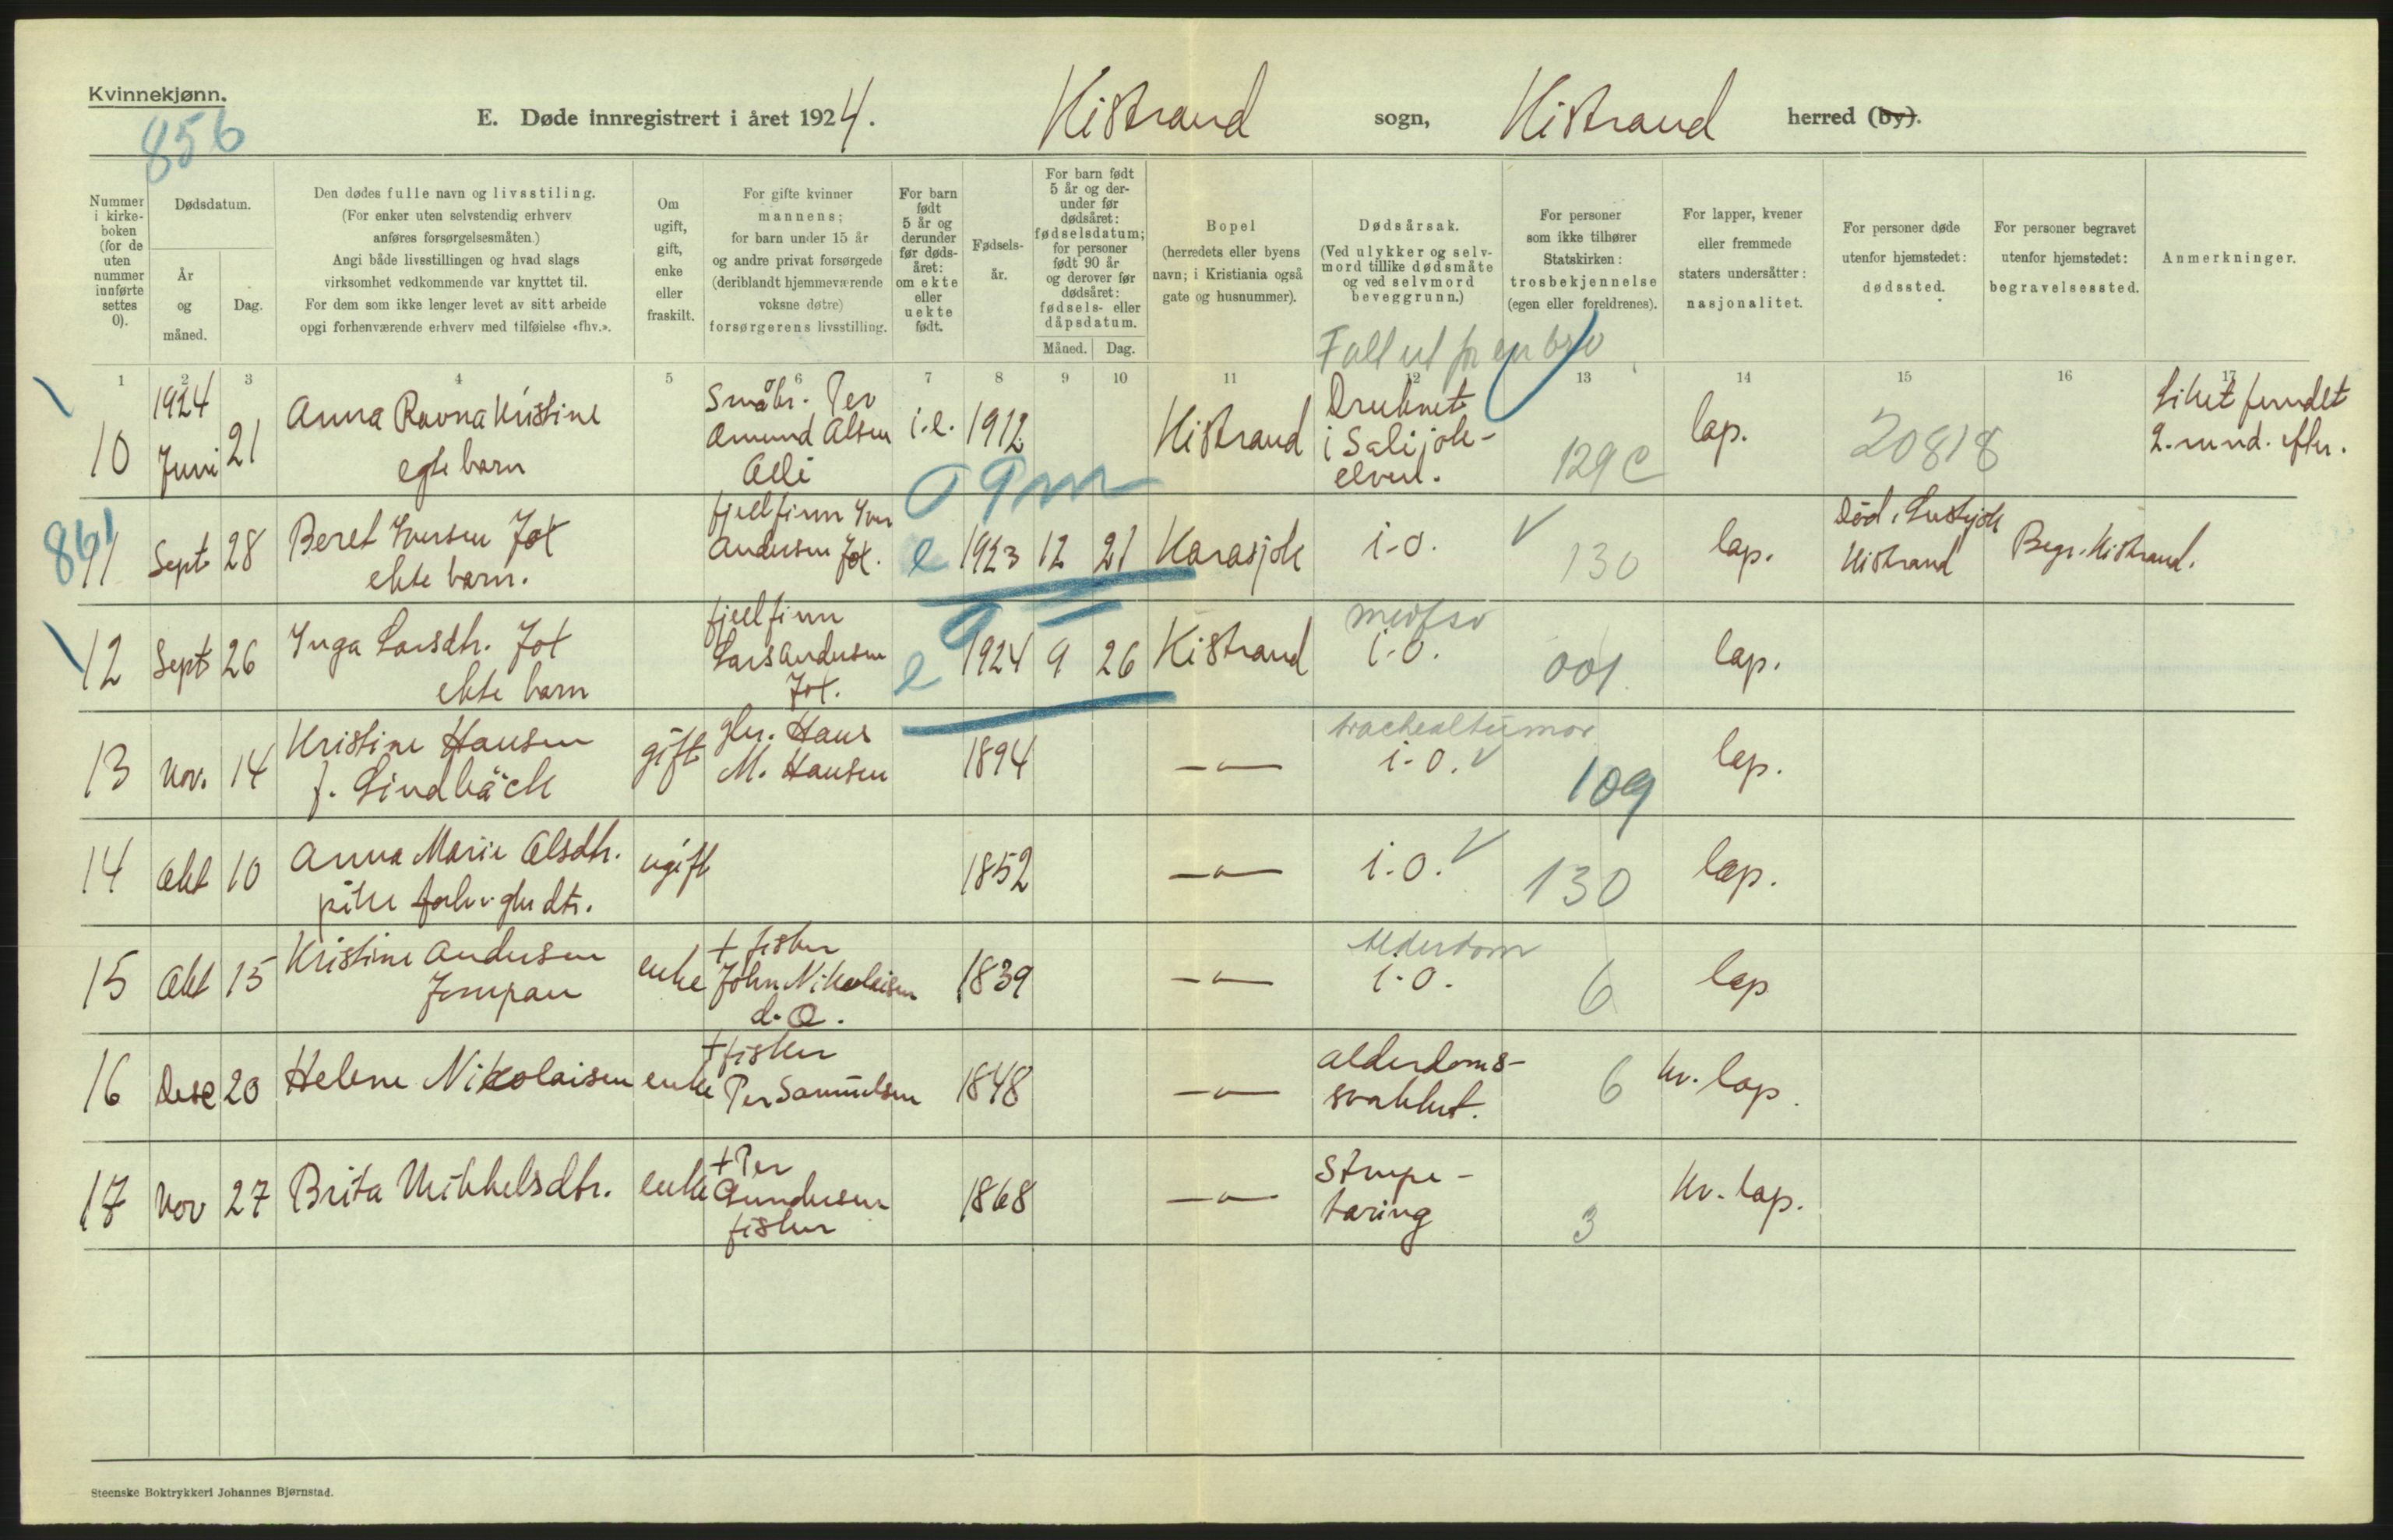 Kvinnekjønn.
856
E. Døde innregistrert i året 1924.
Kistrand sogn, Kistrand herred (by).
Nummer i kirke- boken (for de uten nummer innførte settes 0).
Dødsdatum.
År og måned.
Dag.
Den dødes fulle navn og livsstiling.
(For enker uten selvstendig erhverv
anføres forsørgelsesmåten.)
Angi både livsstillingen og hvad slags
virksomhet vedkommende var knyttet til.
For dem som ikke lenger levet av sitt arbeide
opgi forhenværende erhverv med tilføielse «fhv.».
Om ugift, gift, enke eller fraskilt.
For gifte kvinner
mannens;
for barn under 15 år
og andre privat forsørgede
(deriblandt hjemmeværende
voksne døtre)
forsørgerens livsstilling.
For barn født 5 år og derunder før døds- året: om ekte eller uekte født.
Fødsels- år.
For barn født 5 år og der- under før dødsåret: fødselsdatum; for personer født 90 år og derover før dødsåret: fødsels- eller dåpsdatum.
Måned.
Dag.
Bopel
(herredets eller byens
navn; i Kristiania også
gate og husnummer).
Dødsårsak.
(Ved ulykker og selv-
mord tillike dødsmåte
og ved selvmord
beveggrunn.)
For personer
som ikke tilhører
Statskirken:
trosbekjennelse
(egen eller foreldrenes).
For lapper, kvener
eller fremmede
staters undersåtter:
nasjonalitet.
For personer døde
utenfor hjemstedet:
dødssted.
For personer begravet
utenfor hjemstedet:
begravelsessted.
Anmerkninger.
1 2 3 4 5 6 7 8 9 10 11 12 13 14 15 16 17
Falt ut fr en bro
10 1924 Juni 21
Anna Ravna Kristine
egte barn
Småbr. Per
Amund Olsen
i.e. 1912 Kistrand
Druknet
i Salijok-
elven.
129 c lap. 20818
Liket fundet
2. mnd. efter.
0 9 m
861
11 Sept 28
Beret Iversen Jot
ekte barn.
fjellfinn Iver
Andersen Jot.
e 1923 12 21 Karasjok i-o. 130 lap.
Kistrand
Begr. Kistrand.
12 Sept 26
Inga Larsdtr. Jot
ekte barn
fjellfinn
Lars Andersen
Jot.
e 1924 9 26 Kistrand
medfsv
i-o. 001 lap.
13 Nov. 14
Kristine Hansen
f. Lindbäck
gift
gbr. Hans
M. Hansen
1894 -„-
trachealtumor
i-o. 109 lap.
14 Okt 10
Anna Marie Olsdtr.
pike forhv gbr dtr.
ugift 1852 -„- i.o. 130 lap.
15 Okt 15
Kristine Andersen
enke
+ fisker
John Nikolaisen
d. O.
1839 -„-
Alderdom
i-o. 6 lap
16 Dese 20
Helene Nikolaisen
enke
+ fisker
Per Samuelsen
1848 -„-
alderdoms-
svakhet.
6 kv. lap.
17 Nov 27
Brita Mikkelsdtr.
enke
+ Per
Gundersen
fisker
1868 -„-
Strupe-
tæring
3 kv. lap.
Steenske Boktrykkeri Johannes Bjørnstad.